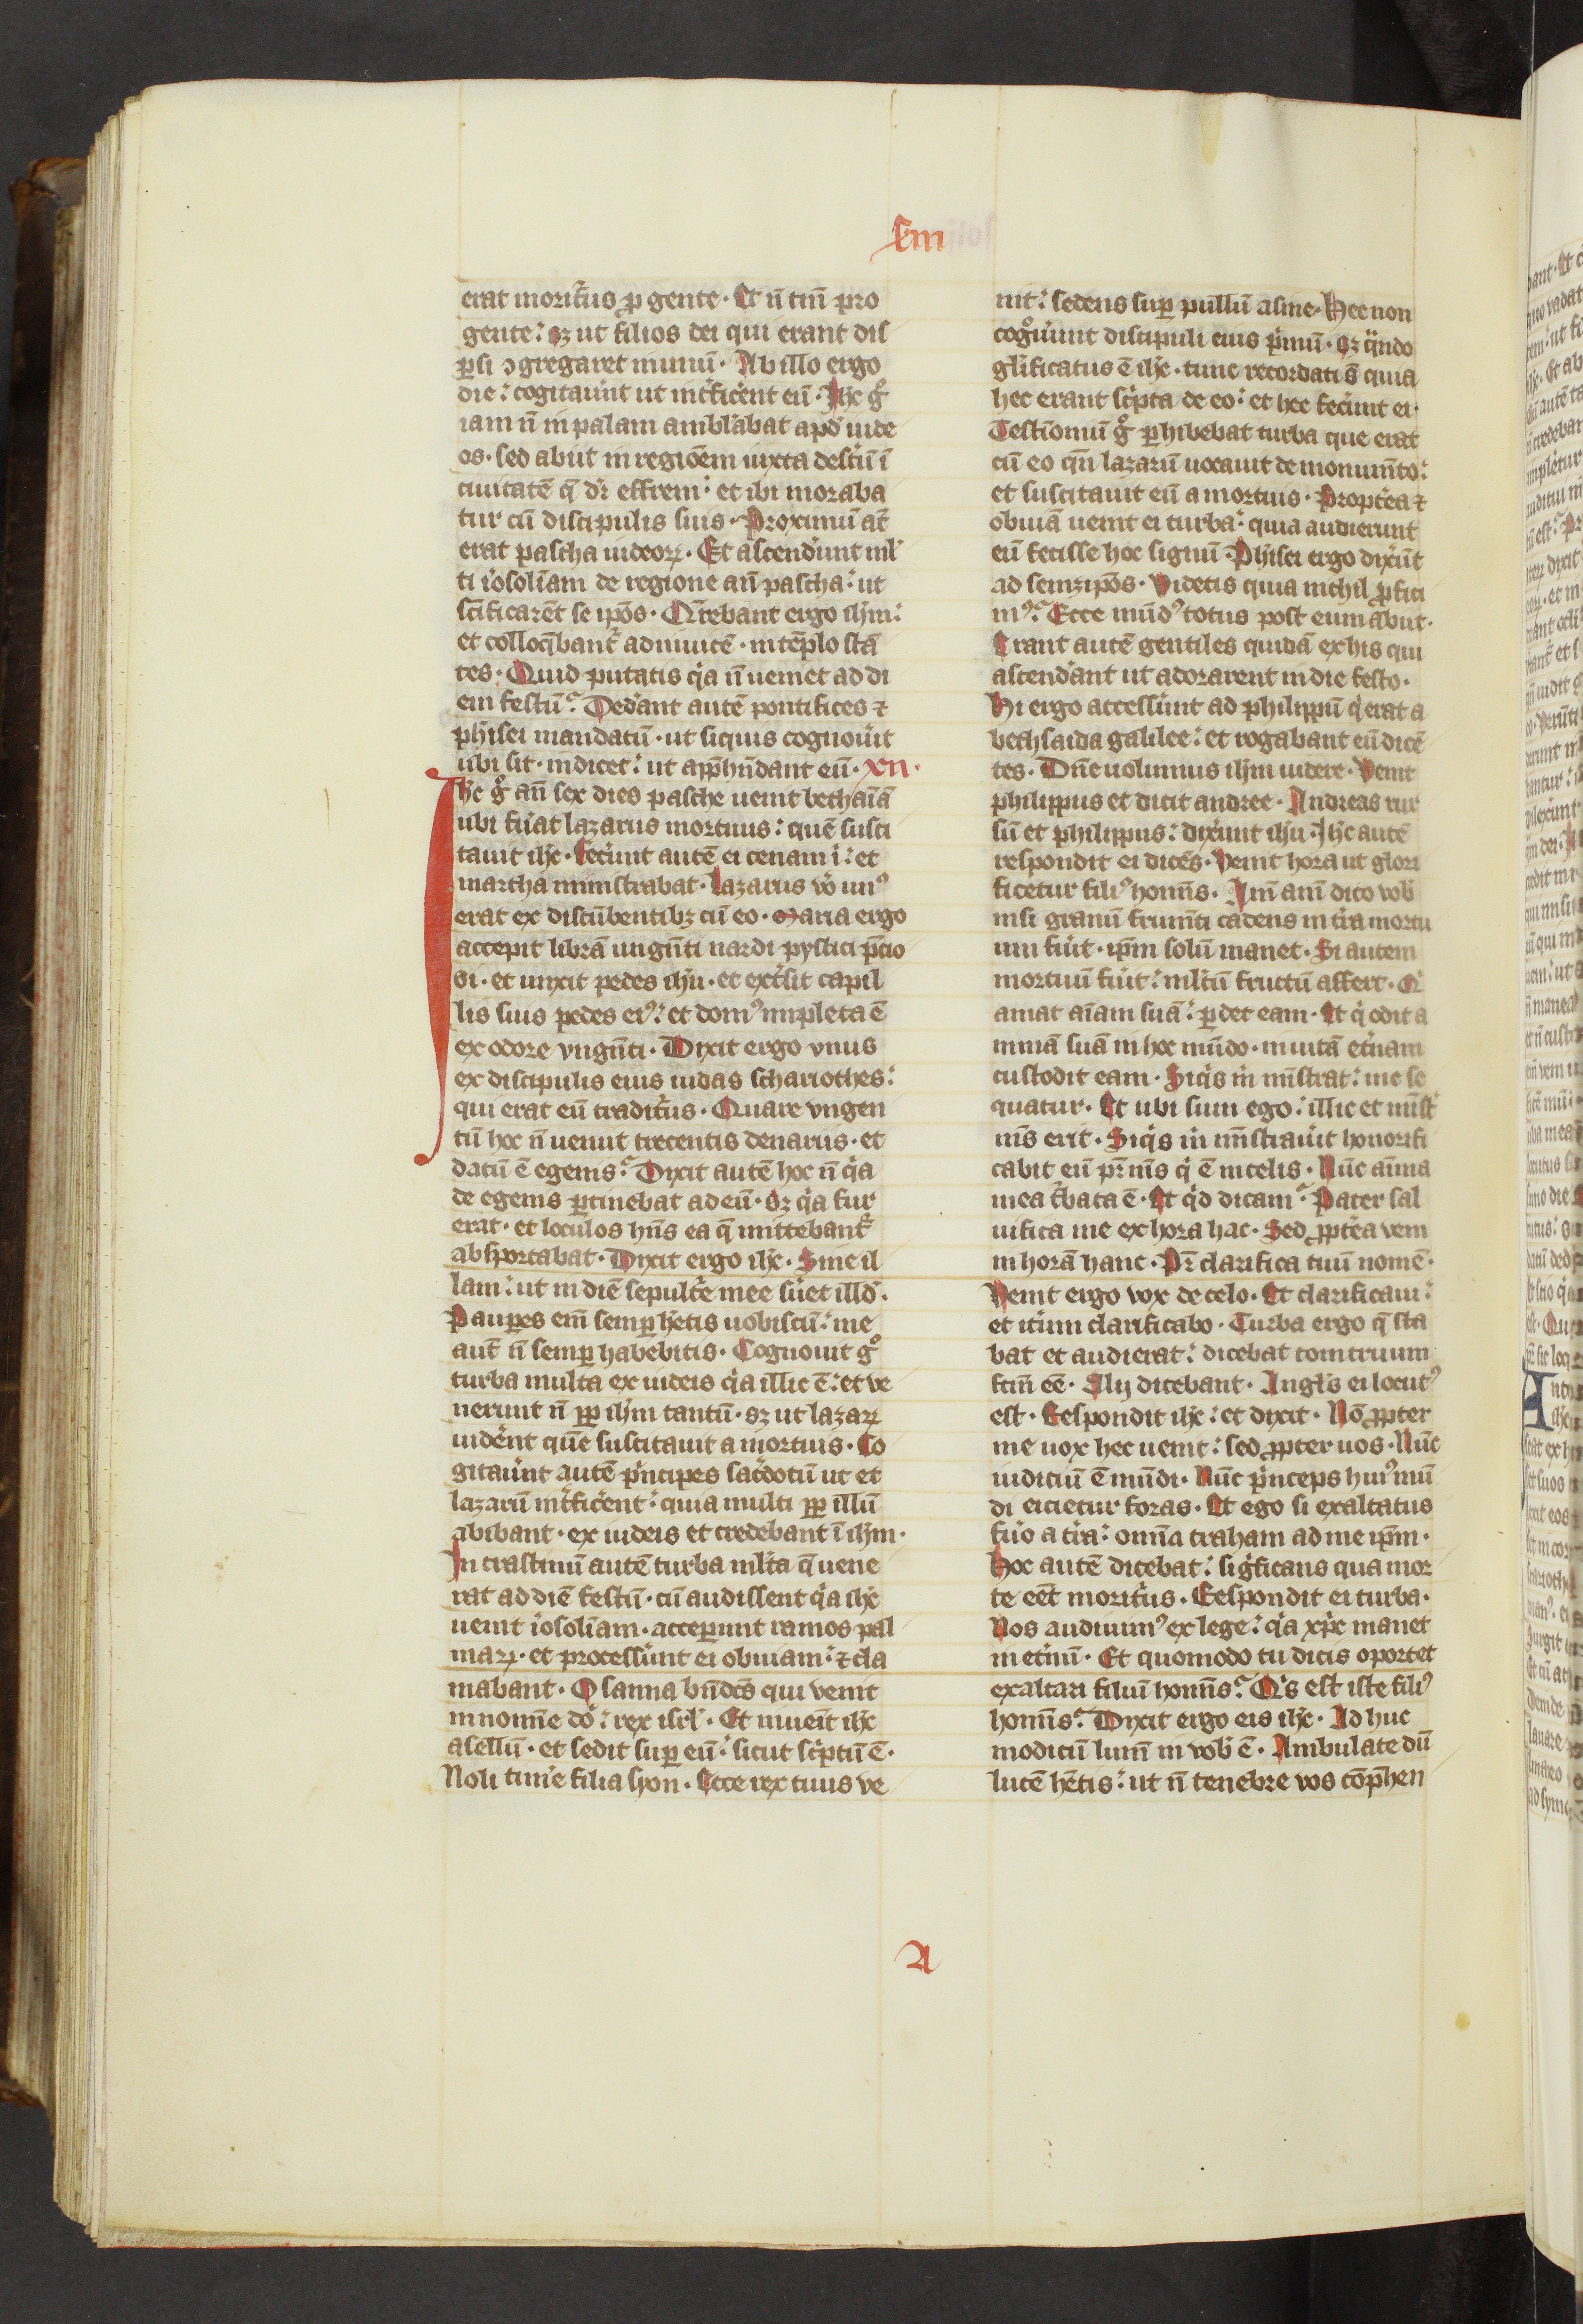 Em
erat moritꝰus ꝓ gente · Et n̄ tm̄ pro
gente : sꝫ ut filios dei qui erant dis
ꝑsi ꝯgregaret in unū · Ab illo ergo
die : cogitaūnt ut int̓fic̓ent eū · Ihc g̊
iam n̄ in palam amblābat apd̓ iude
os · sed abiit in regiōem iuxta des̓tū ī
ciuitatē q̄ dr̄ effrem : et ibi moraba
tur cū discipulis suis · Proximū at̄
erat pascha iudeoꝝ · Et ascend̓unt ml̓
ti ịosolīam de regione an̄ pascha : ut
sc̄ificarēt se ip̄os · Q̄rebant ergo ihm :
et colloq̄bant̄ adinuicē · in tēplo stā
tes · Quid putatis q̓a n̄ uenīet ad di
em festū ? Ded̓ant autē pontifices ⁊
phīsei mandatū · ut siquis cognoūit
ubi sit · indicet : ut app̄hn̄dant eū · XII ·
Ihc g̊ an̄ sex dies pasche uenit bethaīā
ubi fūat lazarus mortuus : quē susci
tauit ihc · Fec̓unt autē ei cenam i : et
martha ministrabat · Lazarus v̊o unꝰ
erat ex discūbentibꝫ cū eo · Maria ergo
accepit librā ungn̄ti nardi pystici p̄cio
si · et unxit pedes ihu · et ext̓sit capil
lis suis pedes eiꝰ : et domꝰ impleta ē
ex odore vngn̄ti · Dixit ergo vnus
ex discipulis eius iudas schariothes :
qui erat eū traditꝰus · Quare vngen
tū hoc n̄ uenūit trecentis denariis · et
datū ē egenis ? Dixit autē hoc n̄ q̓a
de egenis ꝑtinebat ad eū · sꝫ q̓a fur
erat · et loculos hn̄s ea q̄ mittebant̄
absportabat · Dixit ergo ihc · Sine il
lam : ut in diē sepult̓e mee s̓uet illd̓ ·
Pauꝑes em̄ semꝑ hētis uobiscū : me
aut̄ n̄ semꝑ habebitis · Cognouit g̊
turba multa ex iudeis q̓a illic ē : et ve
nerunt n̄ ꝓp̄ ihm tantū · sꝫ ut lazarꝝ
uid̓ent quē suscitauit a mortuis · Co
gitaūnt autē p̓ncipes sac̓dotū ut et
lazarū int̓fic̓ent : quia multi ꝓp̄ illū
abibant · ex iudeis et credebant ī ihm ·
In crastinū autē turba ml̓ta q̄ uene
rat ad diē festū · cū audissent q̓a ihc
uenit ịosolīam · acceꝑunt ramos pal
maꝝ · et process̓unt ei obuiam : ⁊ cla
mabant · Osanna bn̄dc̄s qui venit
in nomīe do̓ : rex isrl̓ · Et inuēit ihc
asellū · et sedit suꝑ eū : sicut sc̓ptū ē ·
Noli tim̓e filia syon · Ecce rex tuus ve
nit : sedens suꝑ pullū asine · Hec non
cog̊ūunt discipuli eius p̓mū · sꝫ q̓ndo
gl̓ificatus ē ihc · tunc recordati s̄ quia
hec erant sc̓pta de eo : et hec fec̓unt ei ·
Testīoniū g̊ ꝑhibebat turba que erat
cū eo qn̄ lazarū uocauit de monumēto :
et suscitauit eū a mortuis · Propt̓ea ⁊
obuiā uenit ei turba : quia audierunt
eū fecisse hoc signū · Phīsei ergo dix̓ūt
ad semꝫipos · Videtis quia nichil ꝓfici
mꝰ ? Ecce mūdꝰ totus post eum abiit ·
Erant autē gentiles quidā ex his qui
ascend̓ant ut adorarent in die festo ·
Hi ergo access̓unt ad philippū q̓ erat a
bethsaida galilee : et rogabant eū dicē
tes · Dn̄e uolumus ihm uidere · Venit
philippus et dicit andree · Andreas rur
sū et philippus : dix̓unt ihu · Ihc autē
respondit ei dicēs · Venit hora ut glori
ficetur filiꝰ homīs · Am̄ am̄ dico vob̓
nisi granū frumēti cadens in t̓ra mortu
um fūit · ip̄m solū manet · Si autem
mortuū fūit : ml̓tū fructū affert · Q̓
amat aīam suā : ꝑdet eam · Et q̓ odit a
nimā suā in hoc mūdo · in uitā et̓nam
custodit eam · Siq̓s m̓ mīstrat : me se
quatur · Et ubi sum ego : illic et mīst̓
m̄s erit · Siq̓s m̓ mīstraūit honorifi
cabit eū pr̄ m̄s q̓ ē in celis · Nūc aīma
mea t̓bata ē · Et q̓d dicam ? Pater sal
uifica me ex hora hac · Sed ꝓpt̓ea veni
in horā hanc · Pr̄ clarifica tuū nomē ·
Venit ergo vox de celo · Et clarificaui :
et it̓um clarificabo · Turba ergo q̄ sta
bat et audierat : dicebat tonitruum
fc̄m eē · Alij dicebant · Angl̓s ei locutꝰ
est · Respondit ihc : et dixit · Nō ꝓpter
me uox hec uenit : sed ꝓpter uos · Nūc
iudiciū ē mūdi · Nūc p̓nceps huiꝰ mū
di eicietur foras · Et ego si exaltatus
fūo a t̓ra : omīa traham ad me ip̄m ·
Hoc autē dicebat : sig̓ficans qua mor
te eēt moritꝰus · Respondit ei turba ·
Nos audiuimꝰ ex lege : q̓a xp̄c manet
in et̓nū · Et quomodo tu dicis oportet
exaltari filiū homīs ? Q̓s est iste filiꝰ
homīs ? Dixit ergo eis ihc · Ad huc
modicū lum̄ in vob̓ ē · Ambulate dū
lucē hētis : ut n̄ tenebre vos cōp̄hen
A